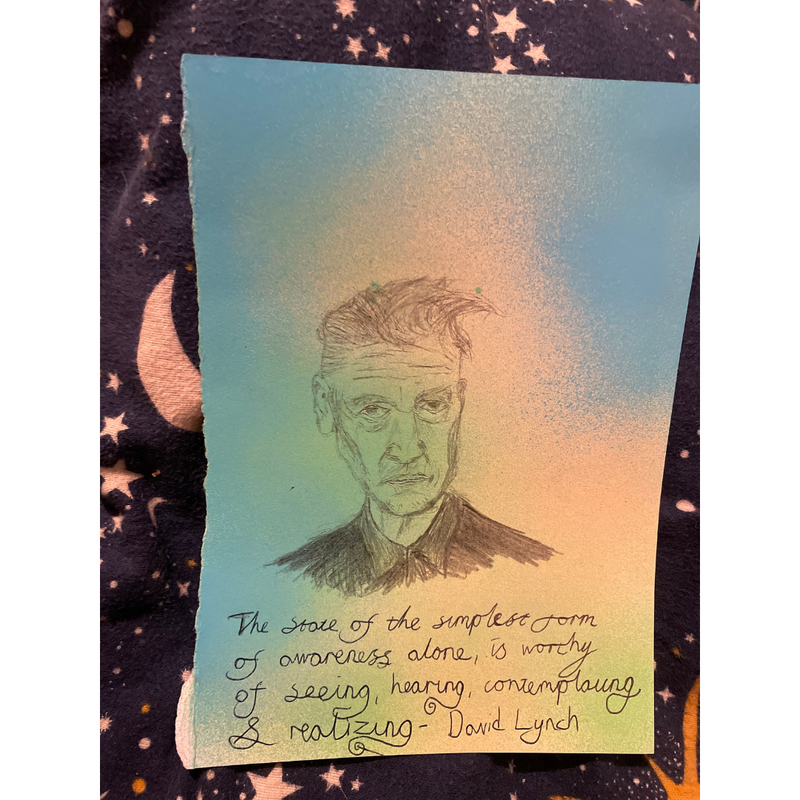 The state of the simplest form
of awareness alone, is worthy
of seeing, hearing, contemplating
& realizing - David Lynch